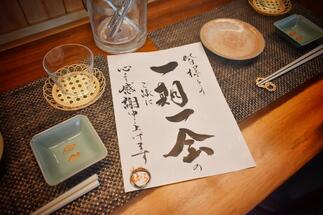 皆様との
一期一会の
ご縁に
心より感謝申し上げます